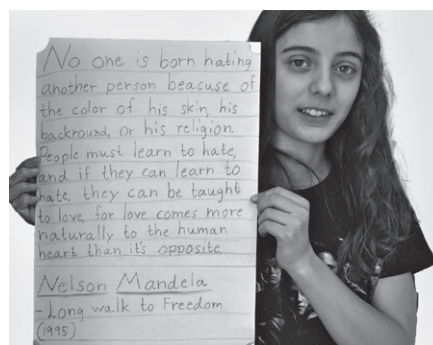 No one is born hating
another person beacuse of
the color of his skin, his
backround, or his religion.
People must learn to hate,
and if they can learn to
hate, they can be taught
to love, for love comes more
naturally to the human
heart than it's opposite
Nelson Mandela
-Long walk to Freedom
(1995)